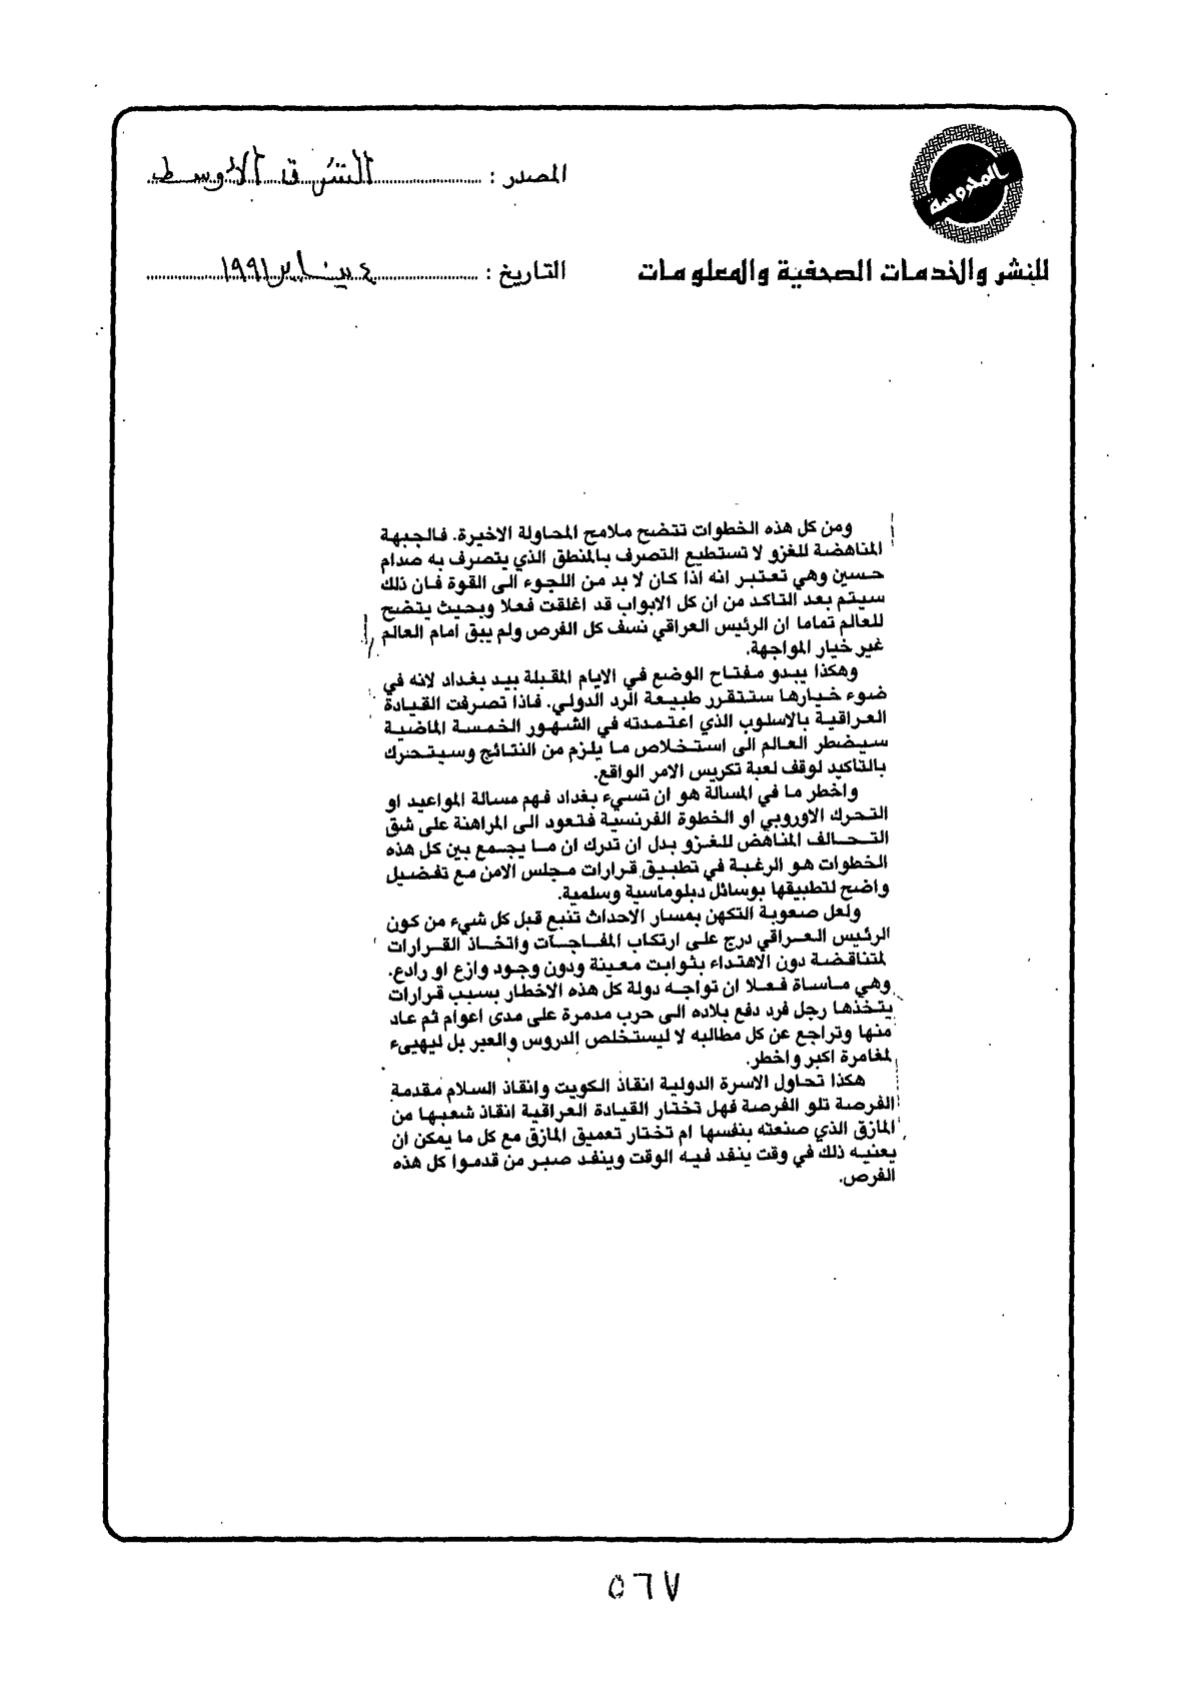 المحروسة
للنشر والخدمات الصحفية والمعلومات
المصدر : الشرق الأوسط
التاريخ : ٤ يناير ١٩٩١
ومن كل هذه الخطوات تتضح ملامح المحاولة الاخيرة. فالجبهة
المناهضة للغزو لا تستطيع التصرف بالمنطق الذي يتصرف به صدام
حسين وهي تعتبر انه اذا كان لا بد من اللجوء الى القوة فان ذلك
سيتم بعد التاكد من ان كل الابواب قد اغلقت فعلا وبحيث يتضح
للعالم تماما ان الرئيس العراقي نسف كل الفرص ولم يبق امام العالم
غير خيار المواجهة.
وهكذا يبدو مفتاح الوضع في الايام المقبلة بيد بغداد لانه في
ضوء خيارها ستتقرر طبيعة الرد الدولي. فاذا تصرفت القيادة
العراقية بالاسلوب الذي اعتمدته في الشهور الخمسة الماضية
سيضطر العالم الى استخلاص ما يلزم من النتائج وسيتحرك
بالتاكيد لوقف لعبة تكريس الامر الواقع.
واخطر ما في المسالة هو ان تسيء بغداد فهم مسالة المواعيد او
التحرك الاوروبي او الخطوة الفرنسية فتعود الى المراهنة على شق
التحالف المناهض للغزو بدل ان تدرك ان ما يجمع بين كل هذه
الخطوات هو الرغبة في تطبيق قرارات مجلس الامن مع تفضيل
واضح لتطبيقها بوسائل دبلوماسية وسلمية.
ولعل صعوبة التكهن بمسار الاحداث تنبع قبل كل شيء من كون
الرئيس العراقي درج على ارتكاب المفاجآت واتخاذ القرارات
لمتناقضة دون الاهتداء بثوابت معينة ودون وجود وازع او رادع.
وهي ماساة فعلا ان تواجه دولة كل هذه الاخطار بسبب قرارات
يتخذها رجل فرد دفع بلاده الى حرب مدمرة على مدى اعوام ثم عاد
منها وتراجع عن كل مطالبه لا ليستخلص الدروس والعبر بل ليهيىء
لمغامرة اكبر واخطر.
هكذا تحاول الاسرة الدولية انقاذ الكويت وانقاذ السلام مقدمة
الفرصة تلو الفرصة فهل تختار القيادة العراقية انقاذ شعبها من
المازق الذي صنعته بنفسها ام تختار تعميق المازق مع كل ما يمكن ان
يعنيه ذلك في وقت ينفد فيه الوقت وينفد صبر من قدموا كل هذه
الفرص.
٥٦٧